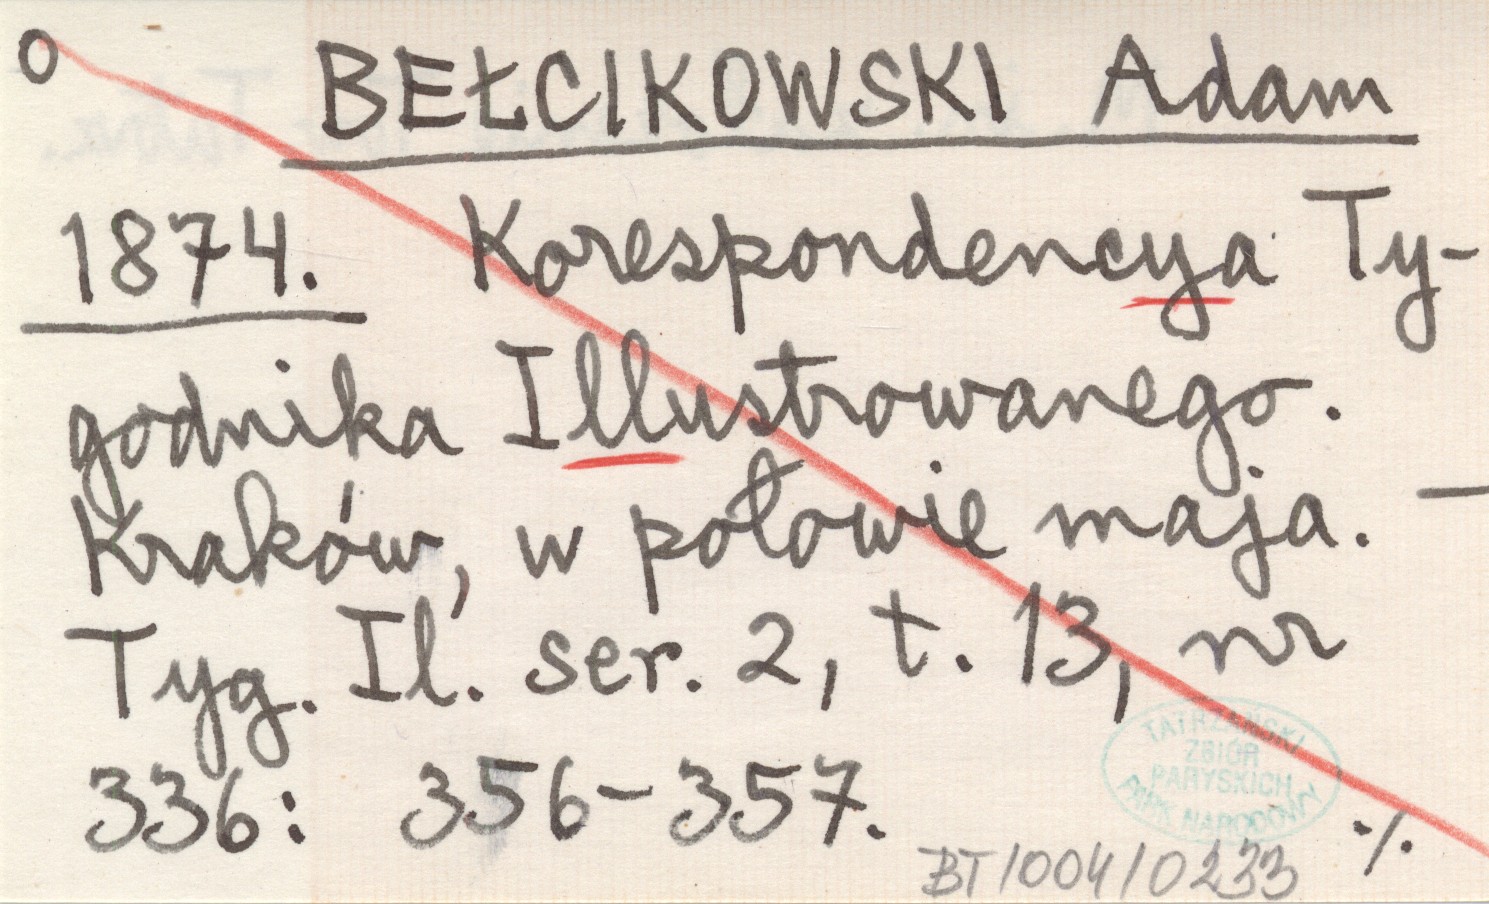 o BEŁCIKOWSKI Adam
1874. Korespondencya Ty-
godnika Illustrowanego.
Kraków, w połowie maja. —
Tyg. Il. ser. 2, t. 13, nr
336: 356-357.
TATRZAŃSKI
ZBIÓR
PARYSKICH
PARK NARODOWY
./.
BT/004/0233